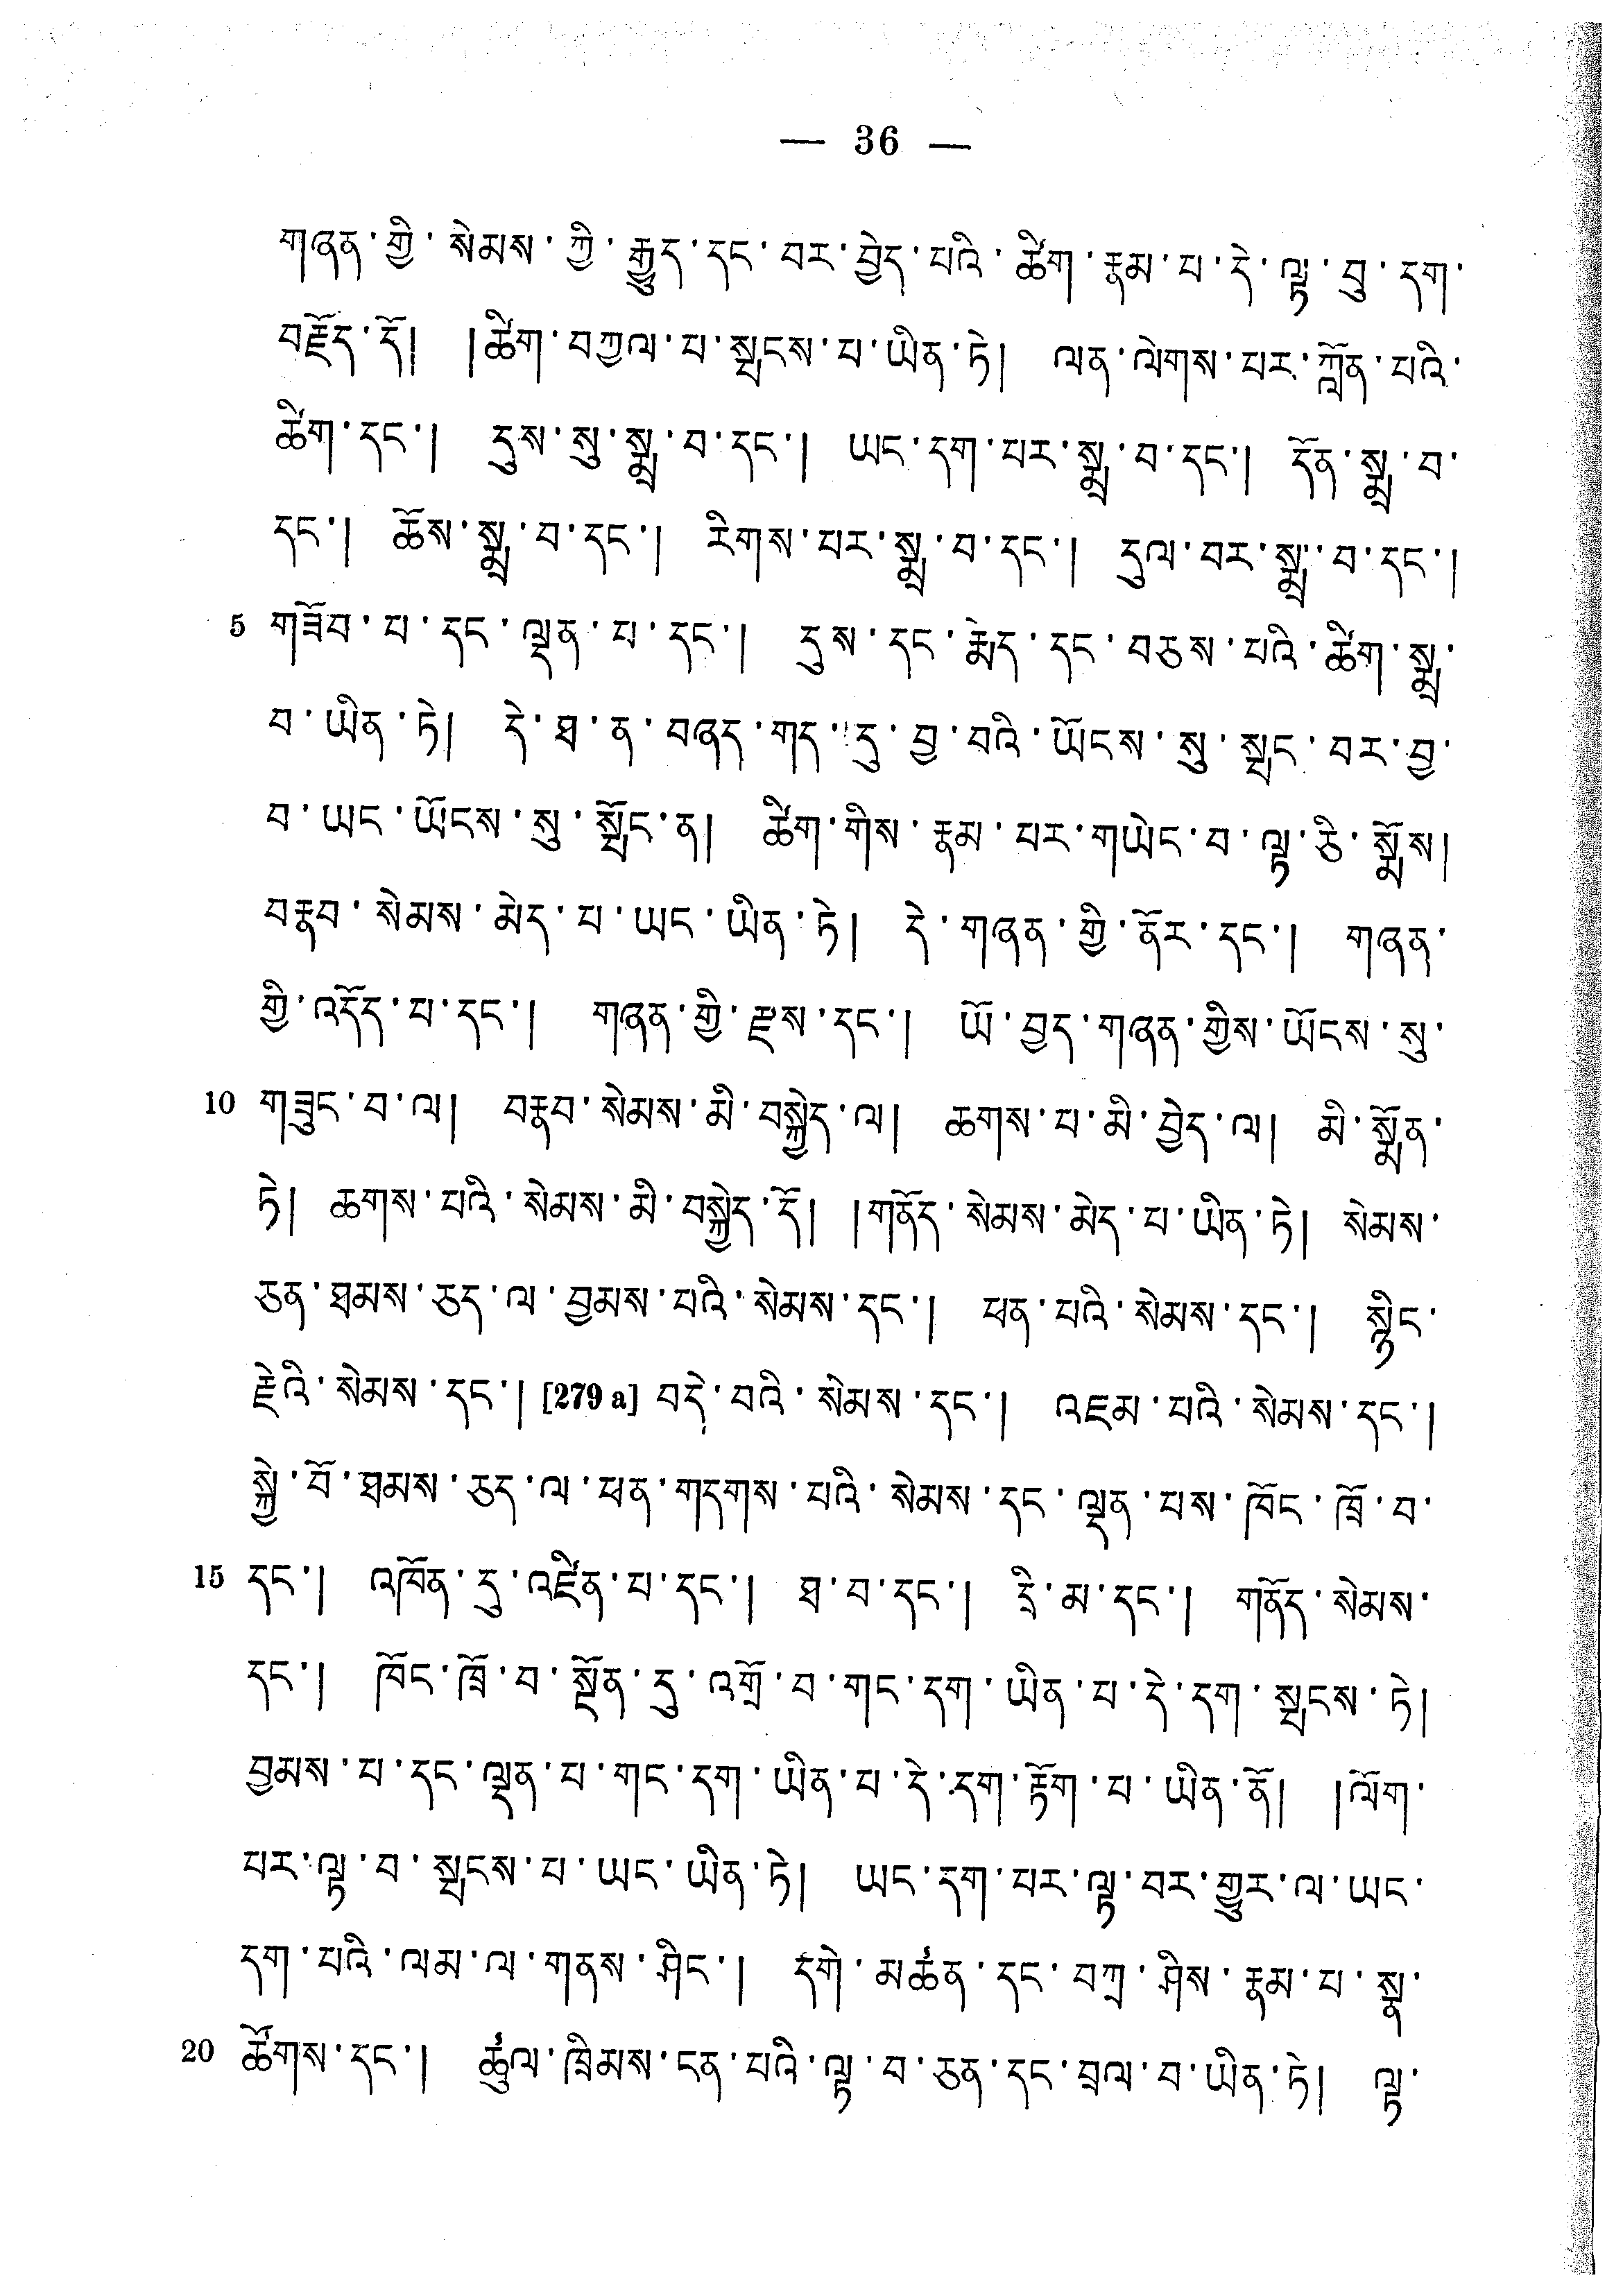 — 36 —
གཞན་གྱི་སེམས་ཀྱི་རྒྱུད་དང་བར་བྱེད་པའི་ཚིག་རྣམ་པ་དེ་ལྟ་བུ་དག་
བརྗོད་དོ། །ཚིག་བཀྱལ་པ་སྤངས་པ་ཡིན་ཏེ། ལན་ལེགས་པར་ཀློན་པའི་
ཚིག་དང་། དུས་སུ་སྨྲ་བ་དང་། ཡང་དག་པར་སྨྲ་བ་དང་། དོན་སྨྲ་བ་
དང་། ཆོས་སྨྲ་བ་དང་། རིགས་པར་སྨྲ་བ་དང་། དུལ་བར་སྨྲ་བ་དང་།
5 གཟོབ་པ་དང་ལྡན་པ་དང་། དུས་དང་རྨེད་དང་བཅས་པའི་ཚིག་སྨྲ་
བ་ཡིན་ཏེ། དེ་ཐ་ན་བཞད་གད་དུ་བྱ་བའི་ཡོངས་སུ་སྤང་བར་བྱ་
བ་ཡང་ཡོངས་སུ་སྤོང་ན། ཚིག་གིས་རྣམ་པར་གཡེང་བ་ལྟ་ཅི་སྨོས།
བརྣབ་སེམས་མེད་པ་ཡང་ཡིན་ཏེ། དེ་གཞན་གྱི་ནོར་དང་། གཞན་
གྱི་འདོད་པ་དང་། གཞན་གྱི་རྫས་དང་། ཡོ་བྱད་གཞན་གྱིས་ཡོངས་སུ་
10 གཟུང་བ་ལ། བརྣབ་སེམས་མི་བསྐྱེད་ལ། ཆགས་པ་མི་བྱེད་ལ། མི་སྨོན་
ཏེ། ཆགས་པའི་སེམས་མི་བསྐྱེད་དོ། །གནོད་སེམས་མེད་པ་ཡིན་ཏེ། སེམས་
ཅན་ཐམས་ཅད་ལ་བྱམས་པའི་སེམས་དང་། ཕན་པའི་སེམས་དང་། སྙིང་
རྗེའི་སེམས་དང་། [279 a] བདེ་བའི་སེམས་དང་། འཇམ་པའི་སེམས་དང་།
སྐྱེ་བོ་ཐམས་ཅད་ལ་ཕན་གདགས་པའི་སེམས་དང་ལྡན་པས་ཁོང་ཁྲོ་བ་
15 དང་། འཁོན་དུ་འཛིན་པ་དང་། ཐ་བ་དང་། དྲི་མ་དང་། གནོད་སེམས་
དང་། ཁོང་ཁྲོ་བ་སྔོན་དུ་འགྲོ་བ་གང་དག་ཡིན་པ་དེ་དག་སྤངས་ཏེ།
བྱམས་པ་དང་ལྡན་པ་གང་དག་ཡིན་པ་དེ་དག་རྟོག་པ་ཡིན་ནོ། །ལོག་
པར་ལྟ་བ་སྤངས་པ་ཡང་ཡིན་ཏེ། ཡང་དག་པར་ལྟ་བར་གྱུར་ལ་ཡང་
དག་པའི་ལམ་ལ་གནས་ཤིང་། དགེ་མཚན་དང་བཀྲ་ཤིས་རྣམ་པ་སྣ་
20 ཚོགས་དང་། ཚུལ་ཁྲིམས་ངན་པའི་ལྟ་བ་ཅན་དང་བྲལ་བ་ཡིན་ཏེ། ལྟ་